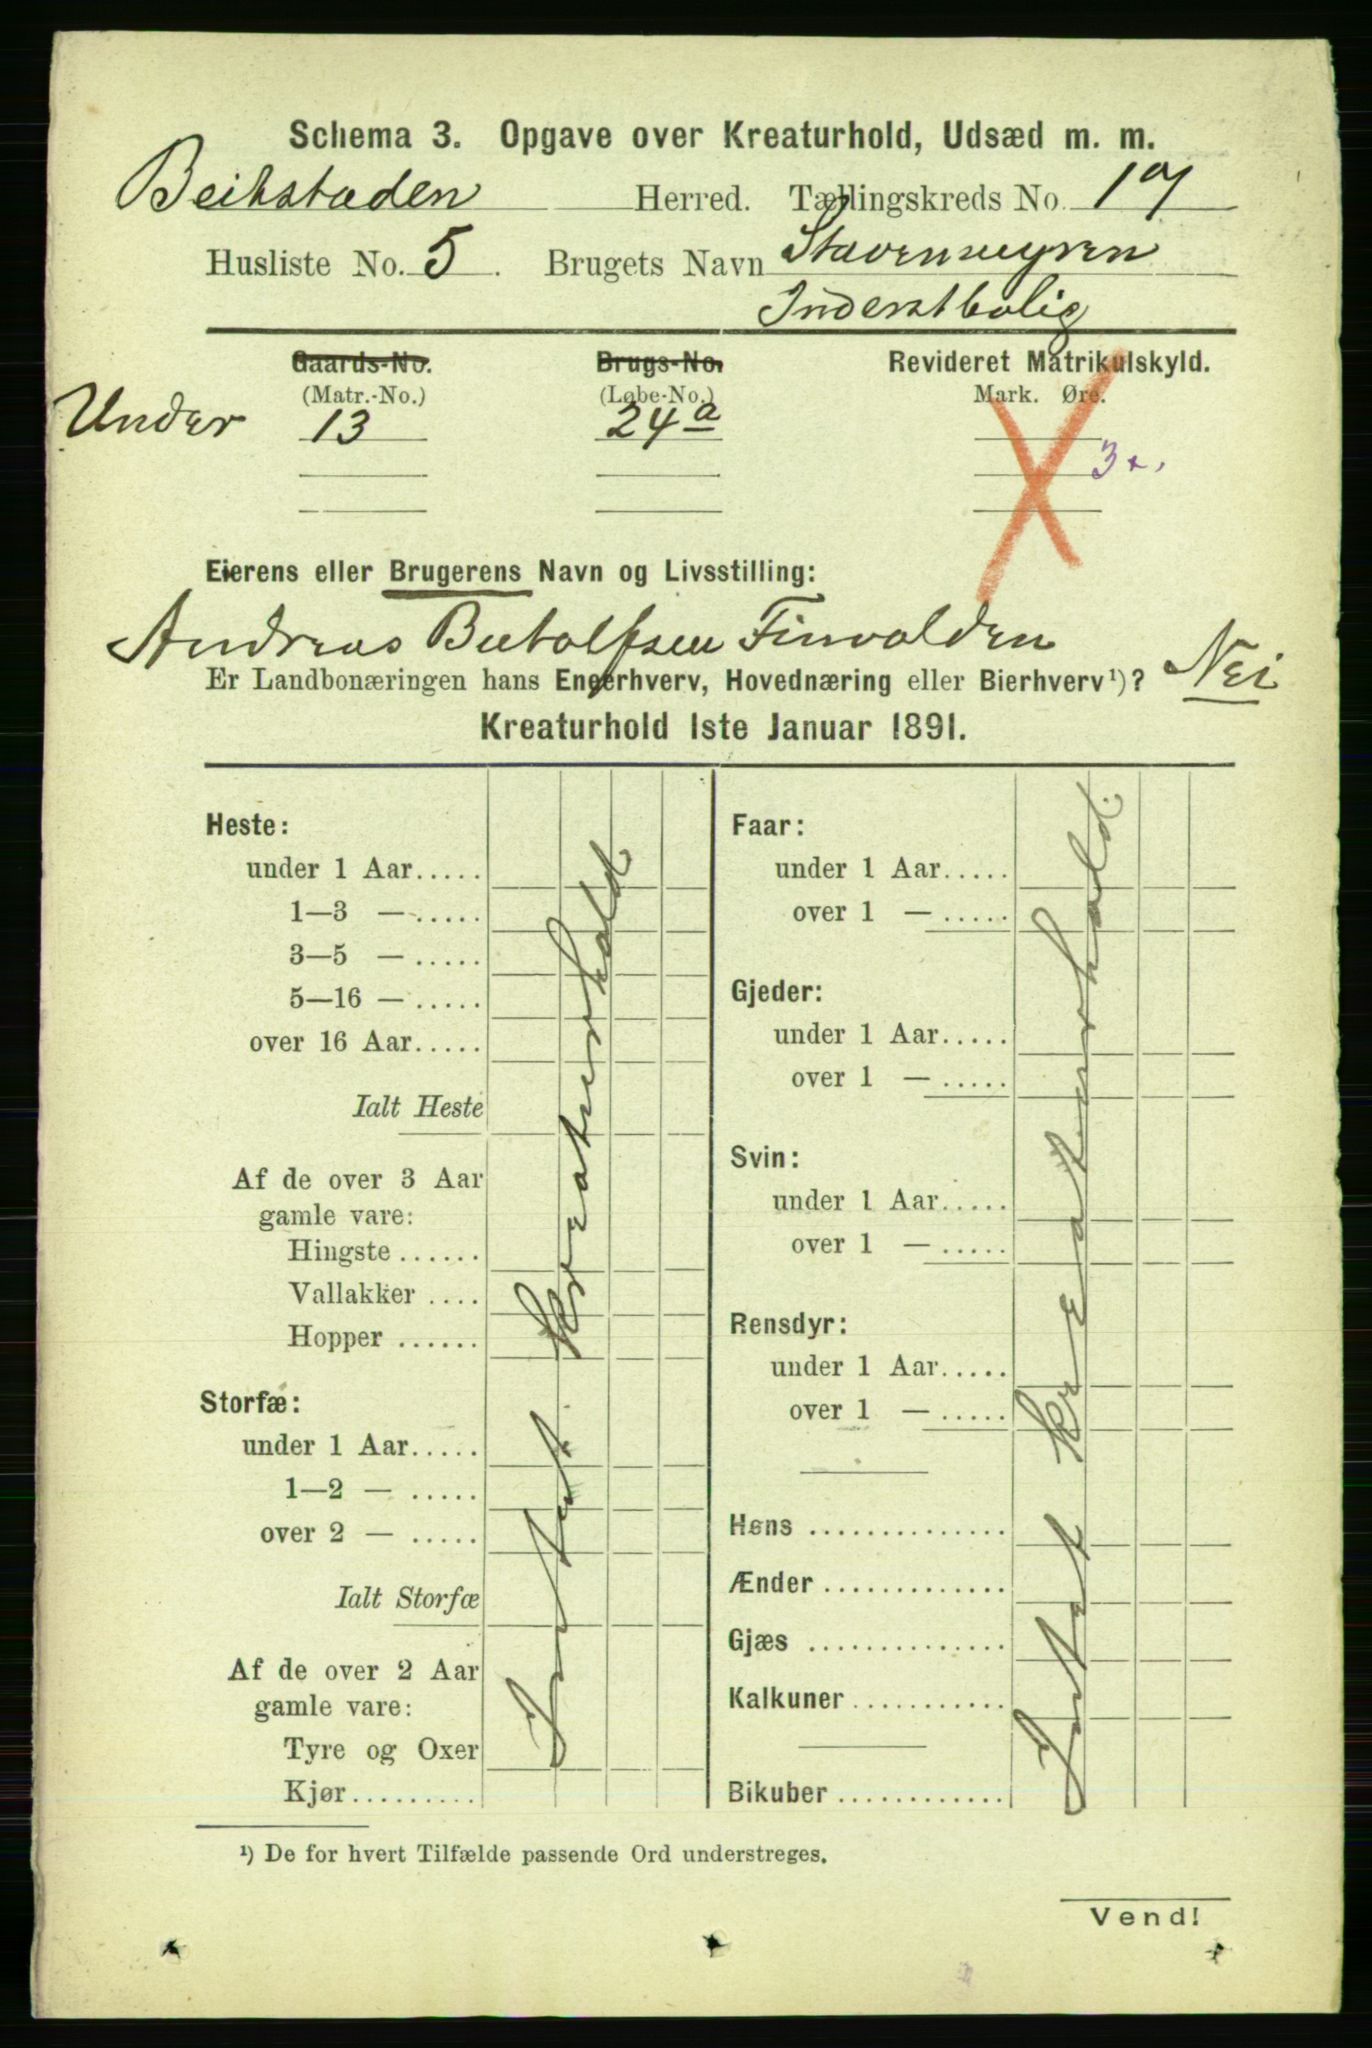 Schema 3. Opgave over Kreaturhold, Udsæd m. m.
Beitstaden Herred. Tællingskreds No. 17
Husliste No. 5. Brugets Navn Stavensmyren
Inderstbolig
Gaards-No. Brugs-No. Revideret Matrikulskyld.
(Matr.-No.) (Løbe-No.) Mark. Øre.
Under 13 24a
3
Eierens eller Brugerens Navn og Livsstilling:
Andreas Butolfsen Finvolden
Er Landbonæringen hans Eneerhverv, Hovednæring eller Bierhverv¹)? Nei
Kreaturhold 1ste Januar 1891.
Heste:
under 1 Aar.....
1—3 — .....
3—5 — .....
5—16 — .....
over 16 Aar.....
Ialt Heste
Af de over 3 Aar
gamle vare:
Hingste ......
Vallakker ....
Hopper ......
Storfæ:
under 1 Aar.....
1—2 — .....
over 2 — .....
Ialt Storfæ
Af de over 2 Aar
gamle vare:
Tyre og Oxer
Kjør.........
Intet Kreaturhold
Faar:
under 1 Aar.....
over 1 — .....
Gjeder:
under 1 Aar.....
over 1 — .....
Svin:
under 1 Aar.....
over 1 — .....
Rensdyr:
under 1 Aar.....
over 1 — .....
Høns ..............
Ænder .............
Gjæs ..............
Kalkuner ...........
Bikuber ............
Intet Kreaturhold.
¹) De for hvert Tilfælde passende Ord understreges.
Vend!